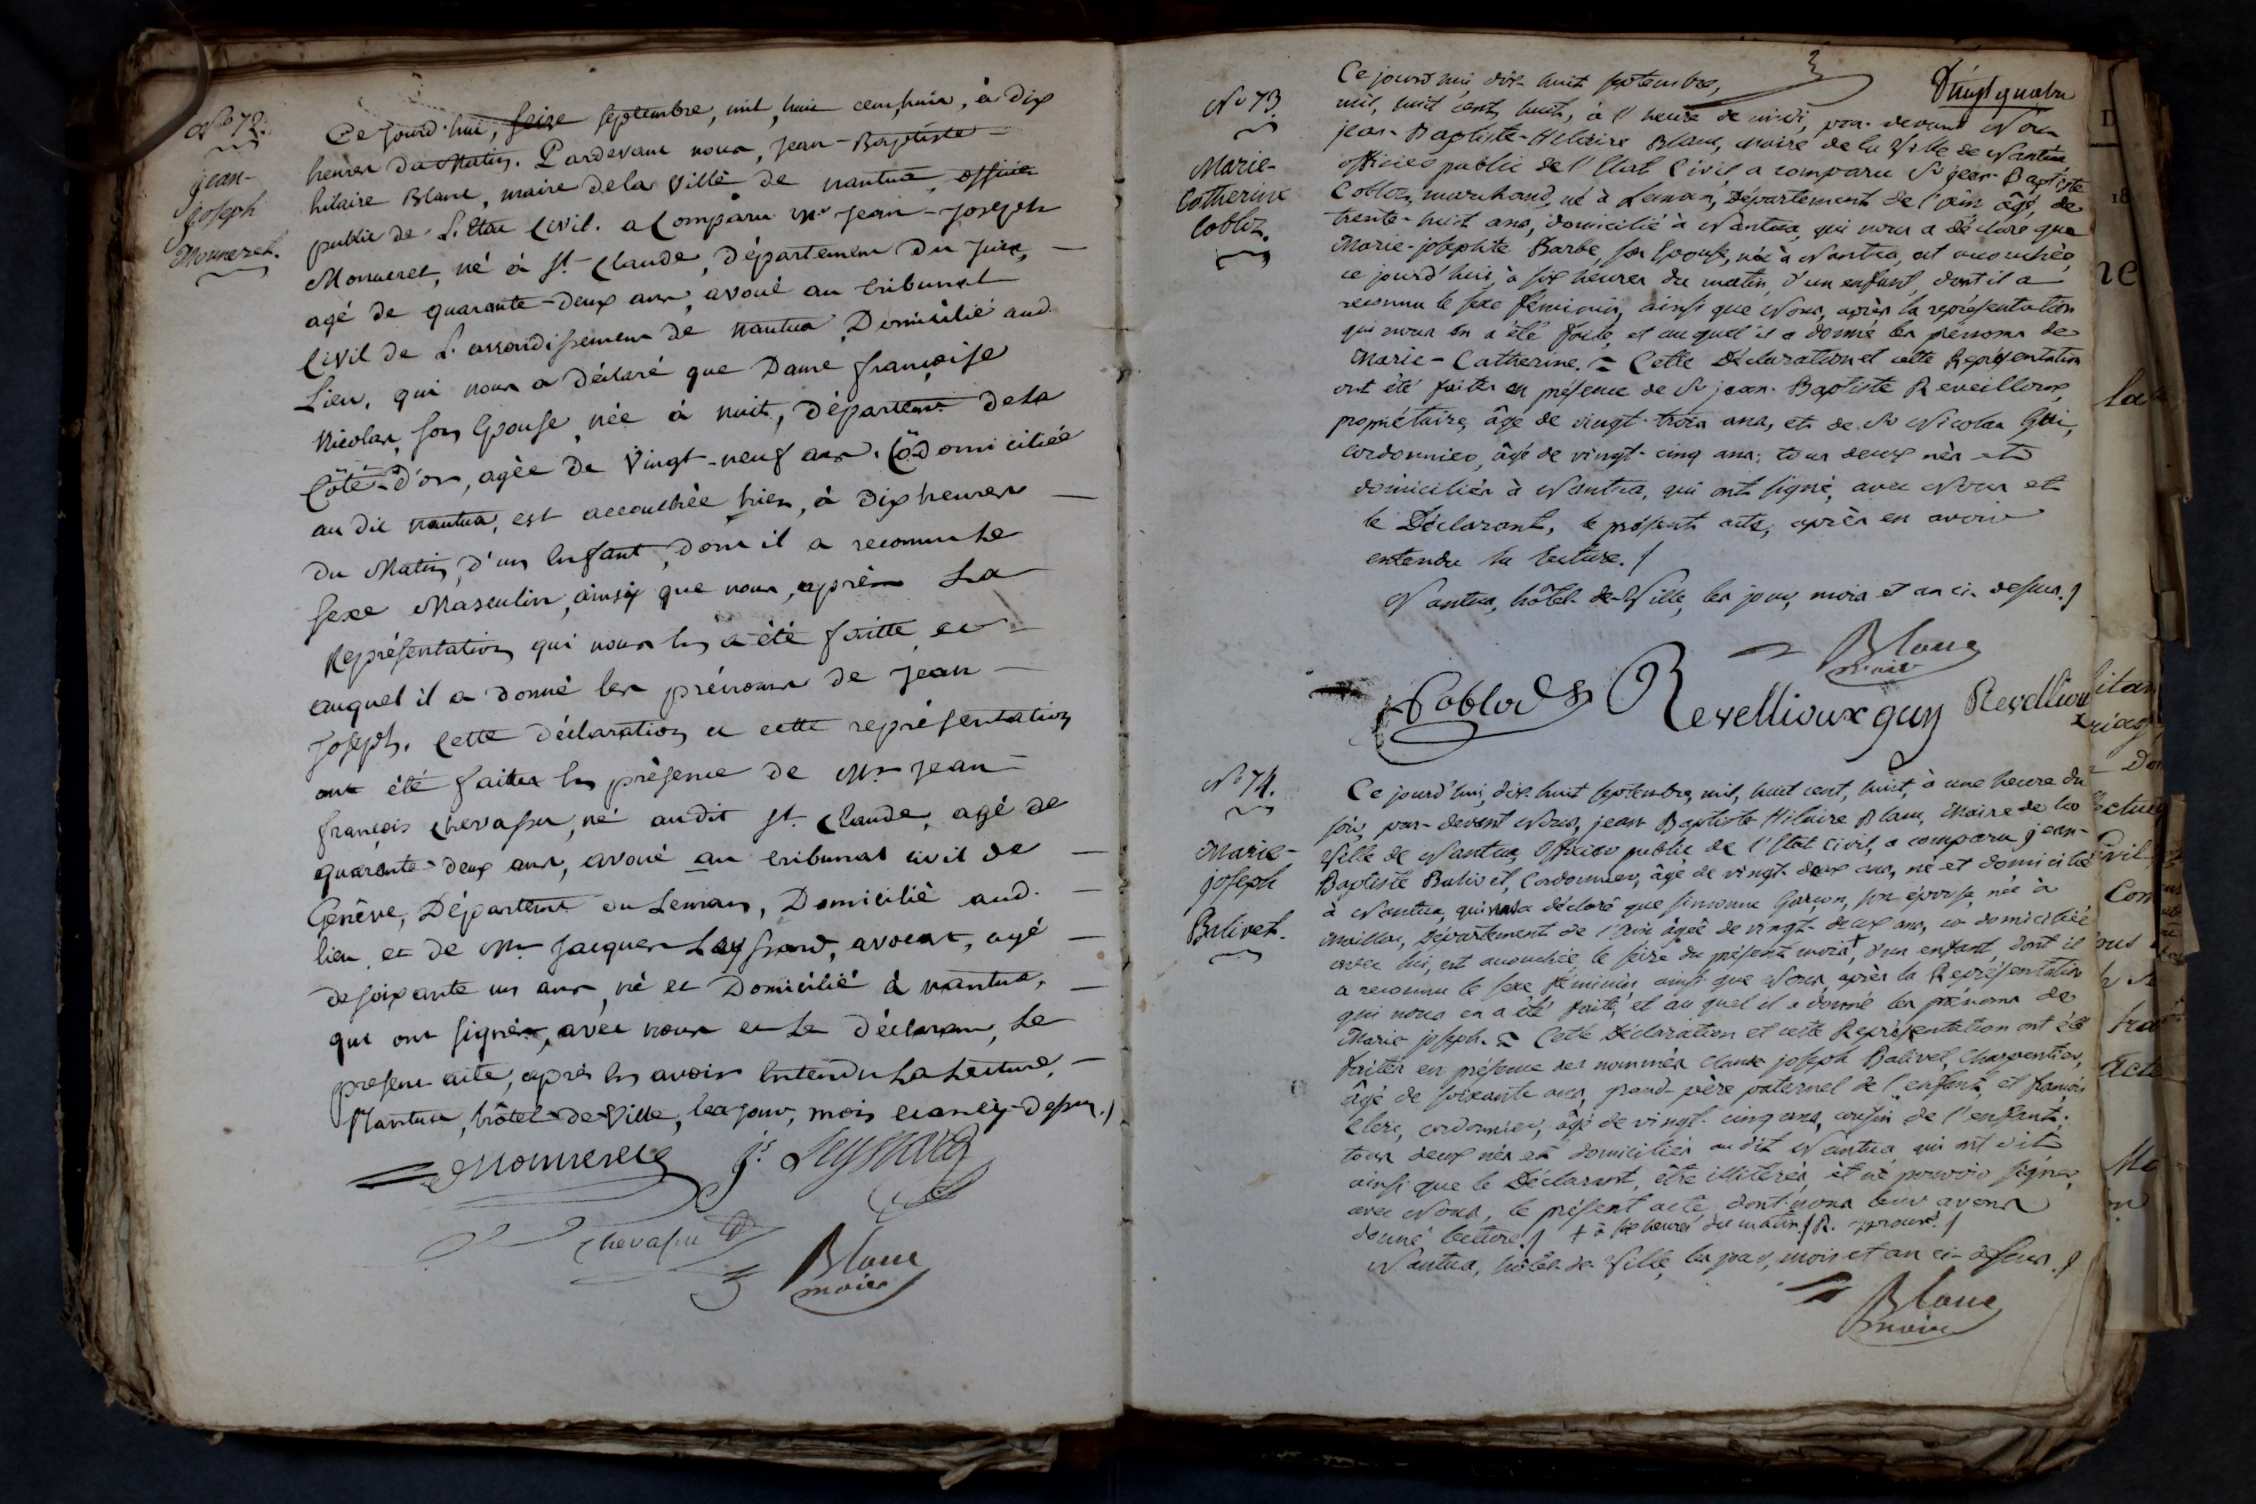 No 72.
jean-
joseph
Monneret.
Ce jourd'hui, seize septembre, mil, huit cent, huit, à dix
heures du Matin. Pardevant nous, jean-Baptiste
hilaire Blanc, maire de la Ville de nantua, officier
public de L'Etat Civil. a Comparu Mr jean-joseph
Monneret, né à St. Claude, Département du Jura,
agé de quarante-deux ans, avoué au tribunal
Civil de L'arrondissement de nantua, Domicilié aud.
Lieu, qui nous a déclaré que Dame françoise
Nicolas, son Epouse, née à nuits, Départemt. de la
Côte-d'or, agée de Vingt-neuf ans, Co-domiciliée
au dit nantua, est accouchée hier, à dix heures
du Matin, d'un Enfant, dont il a reconnu le
sexe Masculin, ainsy que nous, après La
Représentation qui nous en a été faitte, et
auquel il a donné les prénoms de jean
joseph. Cette déclaration et cette représentation
ont été faites en présence de Mr. jean
françois Chevassu, né audit St. Claude, agé de
quarante-deux ans, avoué au tribunal civil de
Genêve, Départemt. du Leman, Domicilié aud.
lieu, et de Mr. Jacques Leyssard, avocat, agé
de soixante un ans, né et Domicilié à nantua,
qui ont signés, avec nous et Le Déclarant, Le
présent acte, après en avoir Entendu La Lecture,
Nantua, hôtel-de-Ville, les jour, mois et an cy-dessus./
Monneret js. Leyssard
Chevassu
Blanc
maire
Vingt quatre
No 73.
Marie-
Catherine
Cobloz.
Ce jourd'hui, dix-huit septembre,
mil, huit cent, huit, à l'heure de midi, par-devant Nous
jean-Baptiste-Hilaire Blanc, Maire de la Ville de Nantua
officier public de l'Etat Civil, a comparu Sr jean-Baptiste
Cobloz, marchand, né à Leman, Département de l'Ain, âgé de
trente-huit ans, domicilié à Nantua, qui nous a déclaré que
Marie-josephte Barbe, son Epouse, née à Nantua, est accouchée,
ce jourd'hui, à six heures du matin, d'un enfant, dont il a
reconnu le sexe féminin, ainsi que Nous, après la représentation
qui nous en a été faite, et auquel il a donné les prénoms de
Marie-Catherine. = Cette Déclaration et cette Représentation
ont été faites en présence de Sr jean-Baptiste Reveilloux,
propriétaire, âgé de vingt-trois ans, et de Sr Nicolas Gui,
cordonnier, âgé de vingt-cinq ans; tous deux nés et
domiciliés à Nantua, qui ont signé, avec Nous et
le Déclarant, le présent acte, après en avoir
entendu la lecture./
Nantua, hôtel-de-Ville, les jour, mois et an ci-dessus./
Blanc
maire
Coblod Revellioux guy Revelliou
x
No 74.
Marie-
joseph
Balivet.
Ce jourd'hui, dix-huit septembre, mil, huit cent, huit, à une heure du
soir, par-devant Nous, jean Baptiste Hilaire Blanc, Maire de la
Ville de Nantua, Officier public de l'Etat Civil, a comparu jean-
Baptiste Balivet, Cordonnier, âgé de vingt-deux ans, né et domicilié
à Nantua, qui nous a déclaré que simonne Garçon, son épouse, née à
Maillat, Département de l'Ain, âgée de vingt-deux ans, co-domiciliée
avec lui, est accouchée le seize du présent mois +, d'un enfant, dont il
a reconnu le sexe féminin, ainsi que Nous, après la Représentation
qui nous en a été faite, et auquel il a donné les prénoms de
Marie joseph. = Cette Déclaration et cette Représentation ont été
faites en présence des nommés Claude joseph Balivet, Charpentier,
âgé de soixante ans, grand-père paternel de l'enfant, et françois
Clerc, cordonnier, âgé de vingt-cinq ans, cousin de l'enfant;
tous deux nés et domiciliés au dit Nantua qui ont dit
ainsi que le Déclarant, être illitérés, et ne pouvoir signer,
avec Nous, le présent acte, dont nous leur avons
donné lecture./ + à six heures du matin /R. approuvé./
Nantua, hôtel-de-Ville, les jour, mois et an ci-dessus./
Blanc
maire